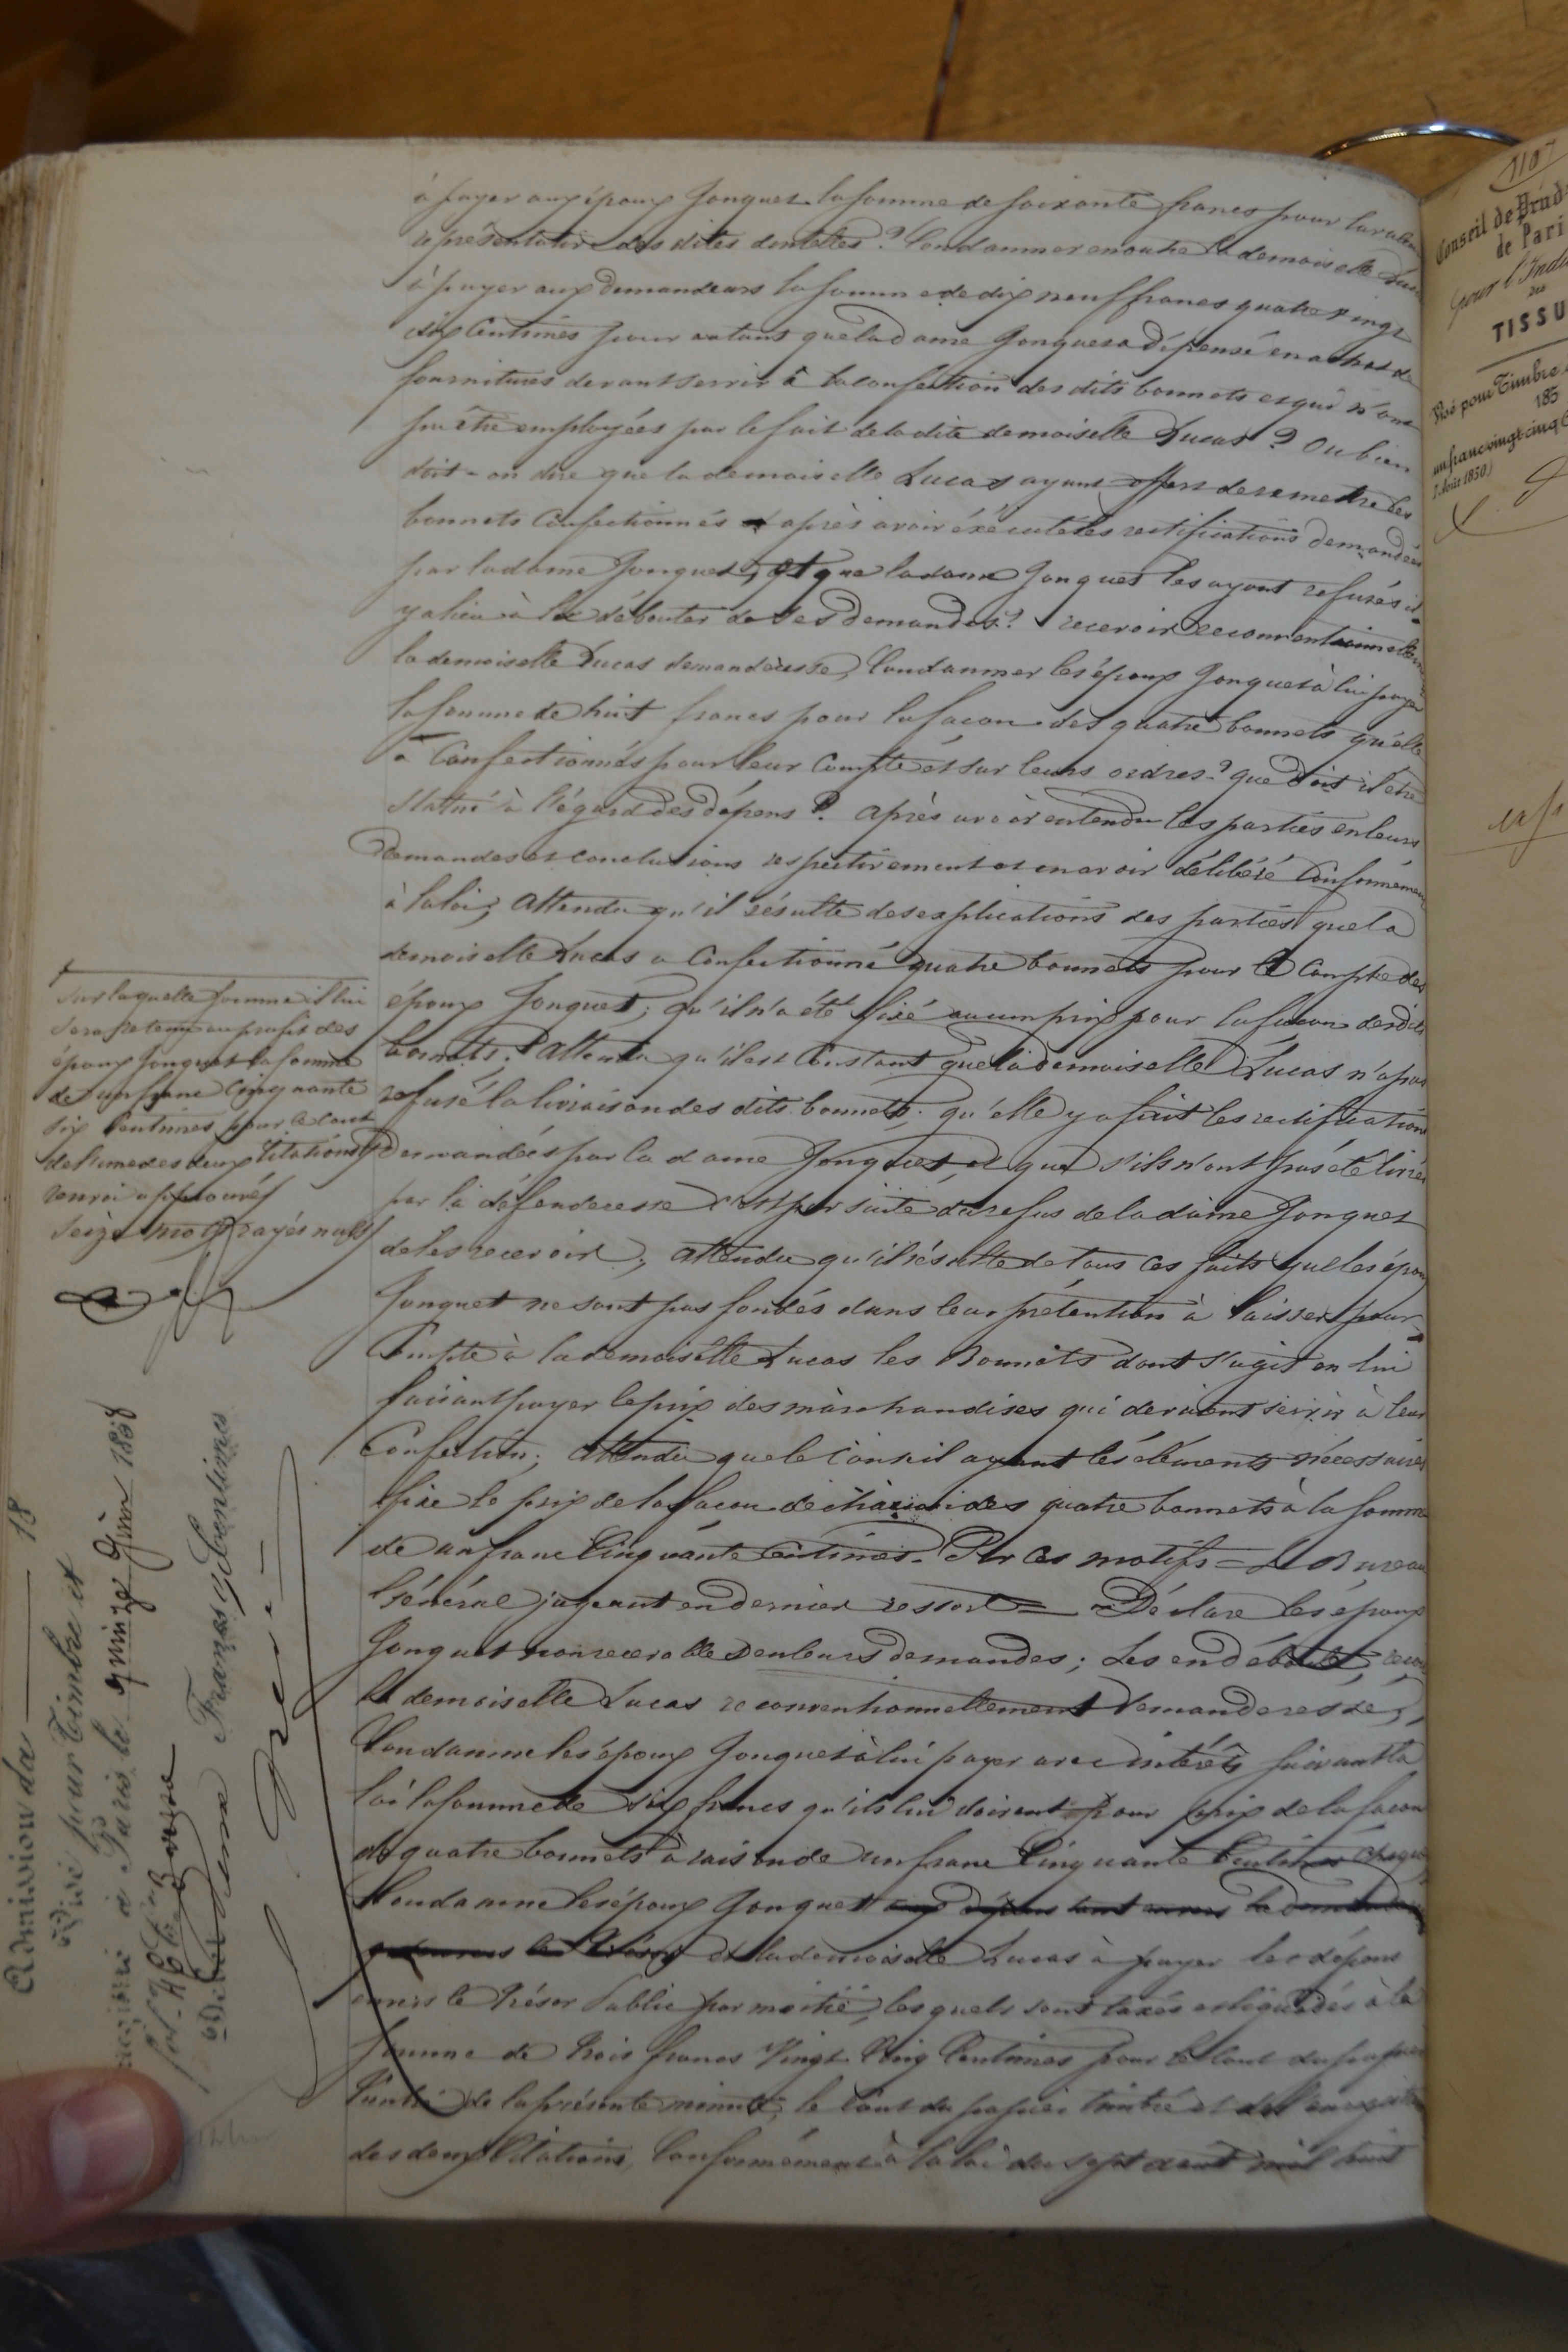 à payer aux époux Jonquet la somme de soixante francs pour la valeur
représentative des dites dentelles ? Condamner en outre la demoiselle Lucas
à payer aux demandeurs la somme de dix neuf francs quatre vingt
dix Centimes pour autant que la dame Jonquet a dépensé en achat de
fournitures devant servir à la confection des dits bonnets et qui n'ont
pu être employées par le fait de la dite demoiselle Lucas ? Ou bien
doit-on dire que la demoiselle Lucas ayant offert de remettre les
bonnets Confectionnés après avoir éxécuté les rectifications demandées
par la dame Jonquet, et que la dame Jonquet les ayant refusés il
y a lieu à la débouter de ses demandes ? recevoir reconventionnellement
la demoiselle Lucas demanderesse, Condamner les époux Jonquet à lui payer
la somme de huit francs pour la façon des quatre bonnets qu'elle
a Confectionnés pour leur Compte et sur leurs ordres ? que doit il être
statué à l'égard des dépens ? Après avoir entendu les parties en leurs
demandes et conclusions respectivement et en avoir délibéré Conformément
à la loi ; Attendu qu'il résulte des explications des parties que la
demoiselle Lucas a Confectionné quatre bonnets pour le Compte des
époux Jonquet ; qu'il n'a été fixé aucun prix pour la façon desdits
bonnets ; Attendu qu'il est Constant que la demoiselle Lucas n'a pas
refusé la livraison des dits bonnets ; qu'elle y a fait les rectifications
demandées par la dame Jonquet, et que s'ils n'ont pas été livrés
par la défenderesse c'est par suite du refus de la dame Jonquet
de les recevoir ; attendu qu'il résulte de tous ces faits que les époux
Jonquet ne sont pas fondés dans leur prétention à laisser pour
Compte à la demoiselle Lucas les Bonnets dont s'agit en lui
faisant payer le prix des marchandises qui devaient servir à leur
Confection ; Attendu que le Conseil ayant les éléments nécessaires
fixe le prix de la façon de chacun des quatre bonnets à la somme
de un franc Cinquante Centimes. Par ces motifs = Le Bureau
Général jugeant en dernier ressort = Déclare les époux
Jonquet non recevables en leurs demandes ; Les en déboute, reçoit
la demoiselle Lucas reconventionnellement demanderesse,
Condamne les époux Jonquet à lui payer avec intérêts suivant la
loi la somme de six francs qu'ils lui doivent pour prix de la façon
de quatre bonnets à raison de un franc Cinquante Centimes chaque
Condamne les époux Jonquet aux dépens tant envers la demanderesse
qu'envers le Trésor et la demoiselle Lucas à payer les dépens
envers le Trésor Public par moitié, lesquels sont taxés et liquidés à la
somme de trois francs Vingt Cinq Centimes pour le Cout du papier
timbré de la présente minute, le Cout du papier timbré et de l'enregistrement
des deux Citations, Conformément à la loi du sept août mil huit
sur laquelle somme il lui
sera retenu au profit des
époux Jonquet la somme
de un franc Cinquante
six Centimes pour le Cout
de l'une des deux Citations
renvoi approuvé
Seize mots rayés nuls
Admission du 18
Visé pour Timbre et
enregistré à Paris le quinze Juin 1858
fol. 46
Débet Francs Centimes
110
Conseil de Prud
de Pari
pour l'Indu
des
TISSU
Visé pour Timbre
185
un franc vingt cinq C
(Août 1850)